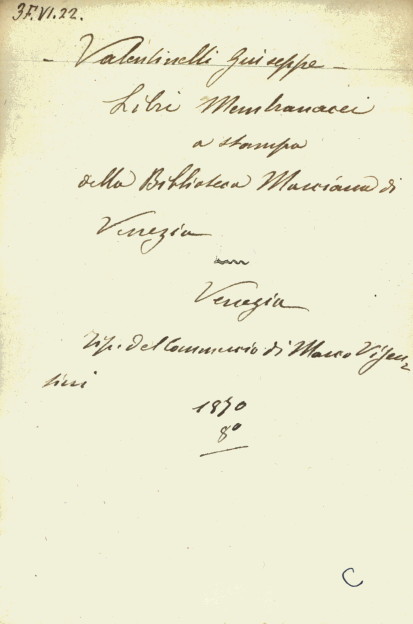 3F.VI.22.
- Valentinelli Guiseppe -
Libri Membranacei
a stampa
della Biblioteca Marciana di
Venezia
Venezia
Tip. del Commercio di Marco Visen-
tini
1870
8º
C